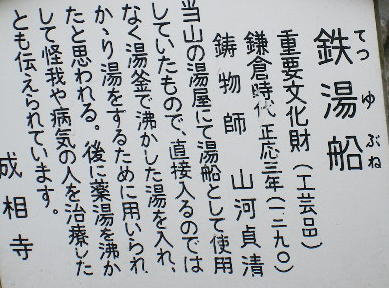 鉄湯船
てつゆぶね
重要文化財(工芸品)
鎌倉時代 正応三年(一二九〇)
鋳物師 山河貞清
当山の湯屋にて湯船として使用
していたもので、直接入るのでは
なく湯釜で沸かした湯を入れ、
かゝり湯をするために用いられ
たと思われる。後に薬湯を沸か
して怪我や病気の人を治療した
とも伝えられています。
成相寺